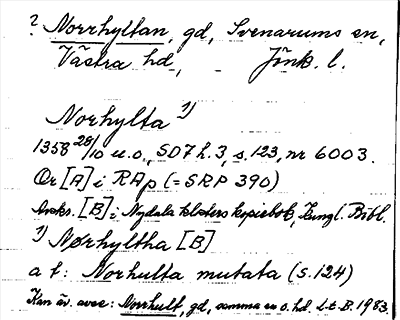 ? Norrhyltan, gd, Svenarums sn,
Västra hd, Jönk. l.
Norhylta 1)
1358 28/10 u.o., SD7 h.3, s.123, nr 6003.
Or [A] i RAp (= SRP 390)
Avskr. [B] i Nydala klosters kopiebok, Kungl. Bibl.
1) Nørhyltha [B]
a t: Norhulta mutata (s.124)
Kan äv. avse: Norrhult, gd, samma sn o. hd.